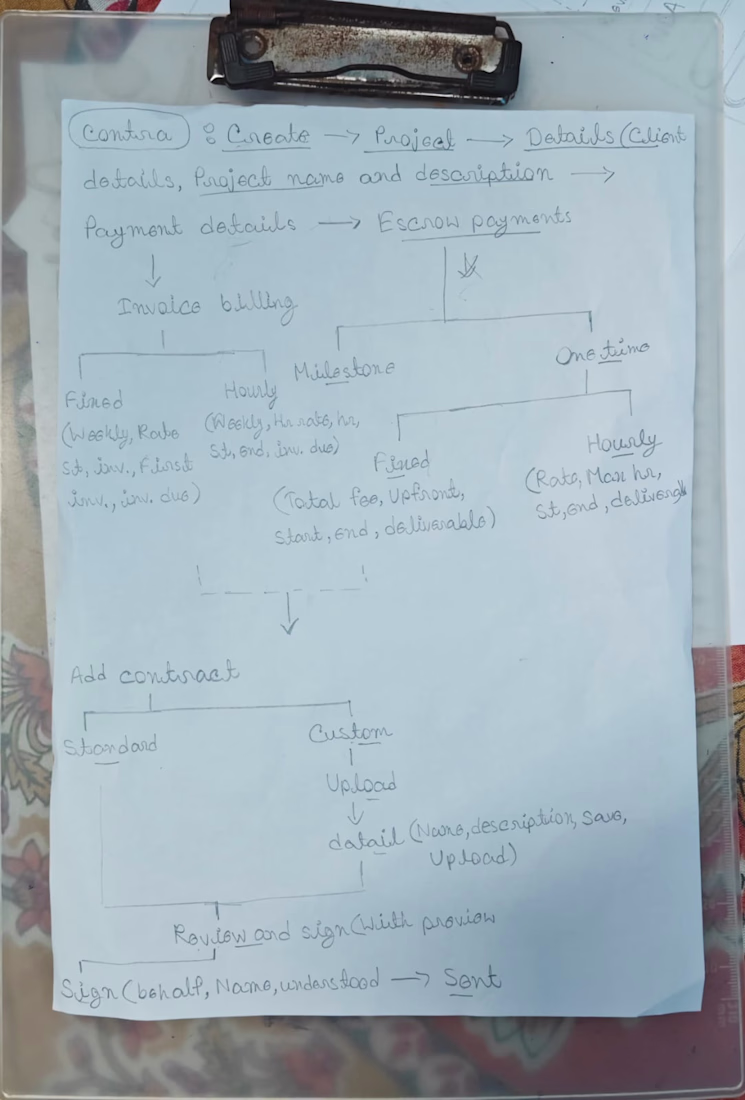 Contra : Create → Project → Details (Client
details, Project name and description →
Payment details → Escrow payments
Invoice billing
Milestone
One time
Fixed
(Weekly, Rate
St, inv., First
inv., inv. due)
Hourly
(Weekly, Hr rate, hr,
St, end, inv. due)
Fixed
(Total fee, Upfront,
Start, end, deliverable)
Hourly
(Rate, Max hr,
St, end, deliverable
Add contract
Standard
Custom
Upload
detail (Name, description, Save,
Upload)
Review and sign (With preview
Sign (behalf, Name, understood → Sent